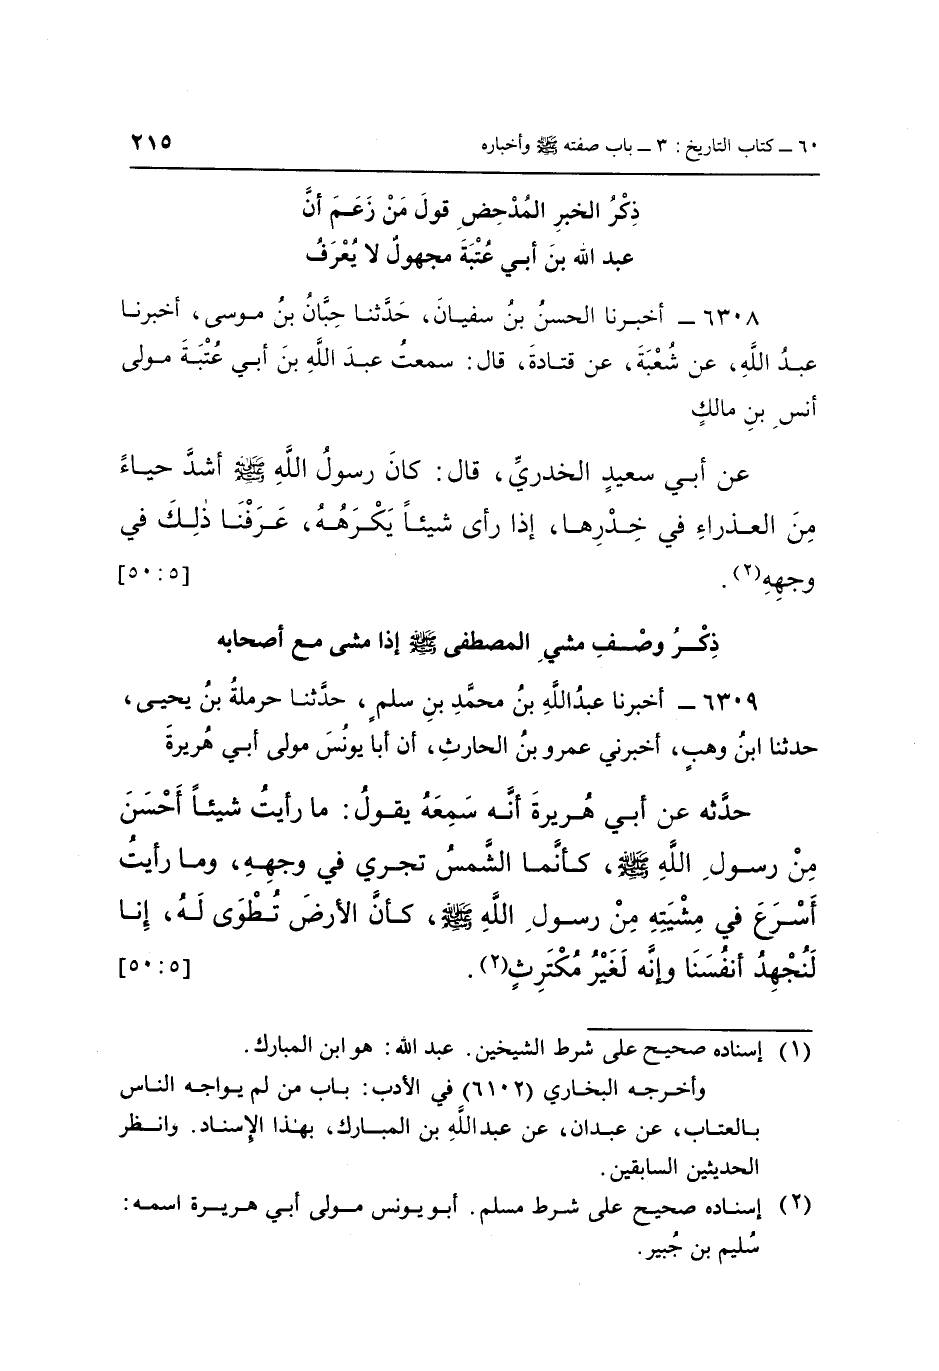 ٦٠ ـ كتاب التاريخ : ٣ ـ باب صفته ﷺ وأخباره ٢١٥
ذِكْرُ الخبرِ المُدْحِضِ قولَ مَنْ زَعَمَ أنَّ
عبد الله بنَ أبي عُتْبَةَ مجهولٌ لا يُعْرَفُ
٦٣٠٨ ـ أخبرنا الحسنُ بنُ سفيانَ، حَدَّثنا حِبَّانُ بنُ موسى، أخبرنا
عبدُ اللَّهِ، عن شُعْبَةَ، عن قتادةَ، قال: سمعتُ عبدَ اللَّهِ بنَ أبي عُتْبَةَ مولى
أنسِ بنِ مالكٍ
عن أبي سعيدٍ الخدريِّ، قال: كانَ رسولُ اللَّهِ ﷺ أشدَّ حياءً
مِنَ العذراءِ في خِدْرِها، إذا رأى شيئاً يَكْرَهُهُ، عَرَفْنَا ذٰلِكَ في
وجهِهِ(٢). [٥٠:٥]
ذِكْرُ وصْفِ مشيِ المصطفى ﷺ إذا مشى مع أصحابه
٦٣٠٩ ـ أخبرنا عبدُاللَّهِ بنُ محمَّدِ بنِ سلمٍ، حدَّثنا حرملةُ بنُ يحيى،
حدثنا ابنُ وهبٍ، أخبرني عمرو بنُ الحارثِ، أن أبا يونُسَ مولى أبي هُريرةَ
حدَّثه عن أبي هُريرةَ أنَّه سَمِعَهُ يقولُ: ما رأيتُ شيئاً أَحْسَنَ
مِنْ رسولِ اللَّهِ ﷺ، كأنَّما الشَّمسُ تجري في وجهِهِ، وما رأيتُ
أَسْرَعَ في مِشْيَتِهِ مِنْ رسولِ اللَّهِ ﷺ، كأنَّ الأرضَ تُطْوَى لَهُ، إنا
لَنُجْهِدُ أنفُسَنَا وإنَّه لَغَيْرُ مُكْتَرِثٍ(٢). [٥٠:٥]
(١) إسناده صحيح على شرط الشيخين. عبد الله: هو ابن المبارك.
وأخرجه البخاري (٦١٠٢) في الأدب: باب من لم يواجه الناس
بالعتاب، عن عبدان، عن عبداللَّهِ بن المبارك، بهذا الإسناد. وانظر
الحديثين السابقين.
(٢) إسناده صحيح على شرط مسلم. أبو يونس مولى أبي هريرة اسمه:
سُليم بن جُبير.